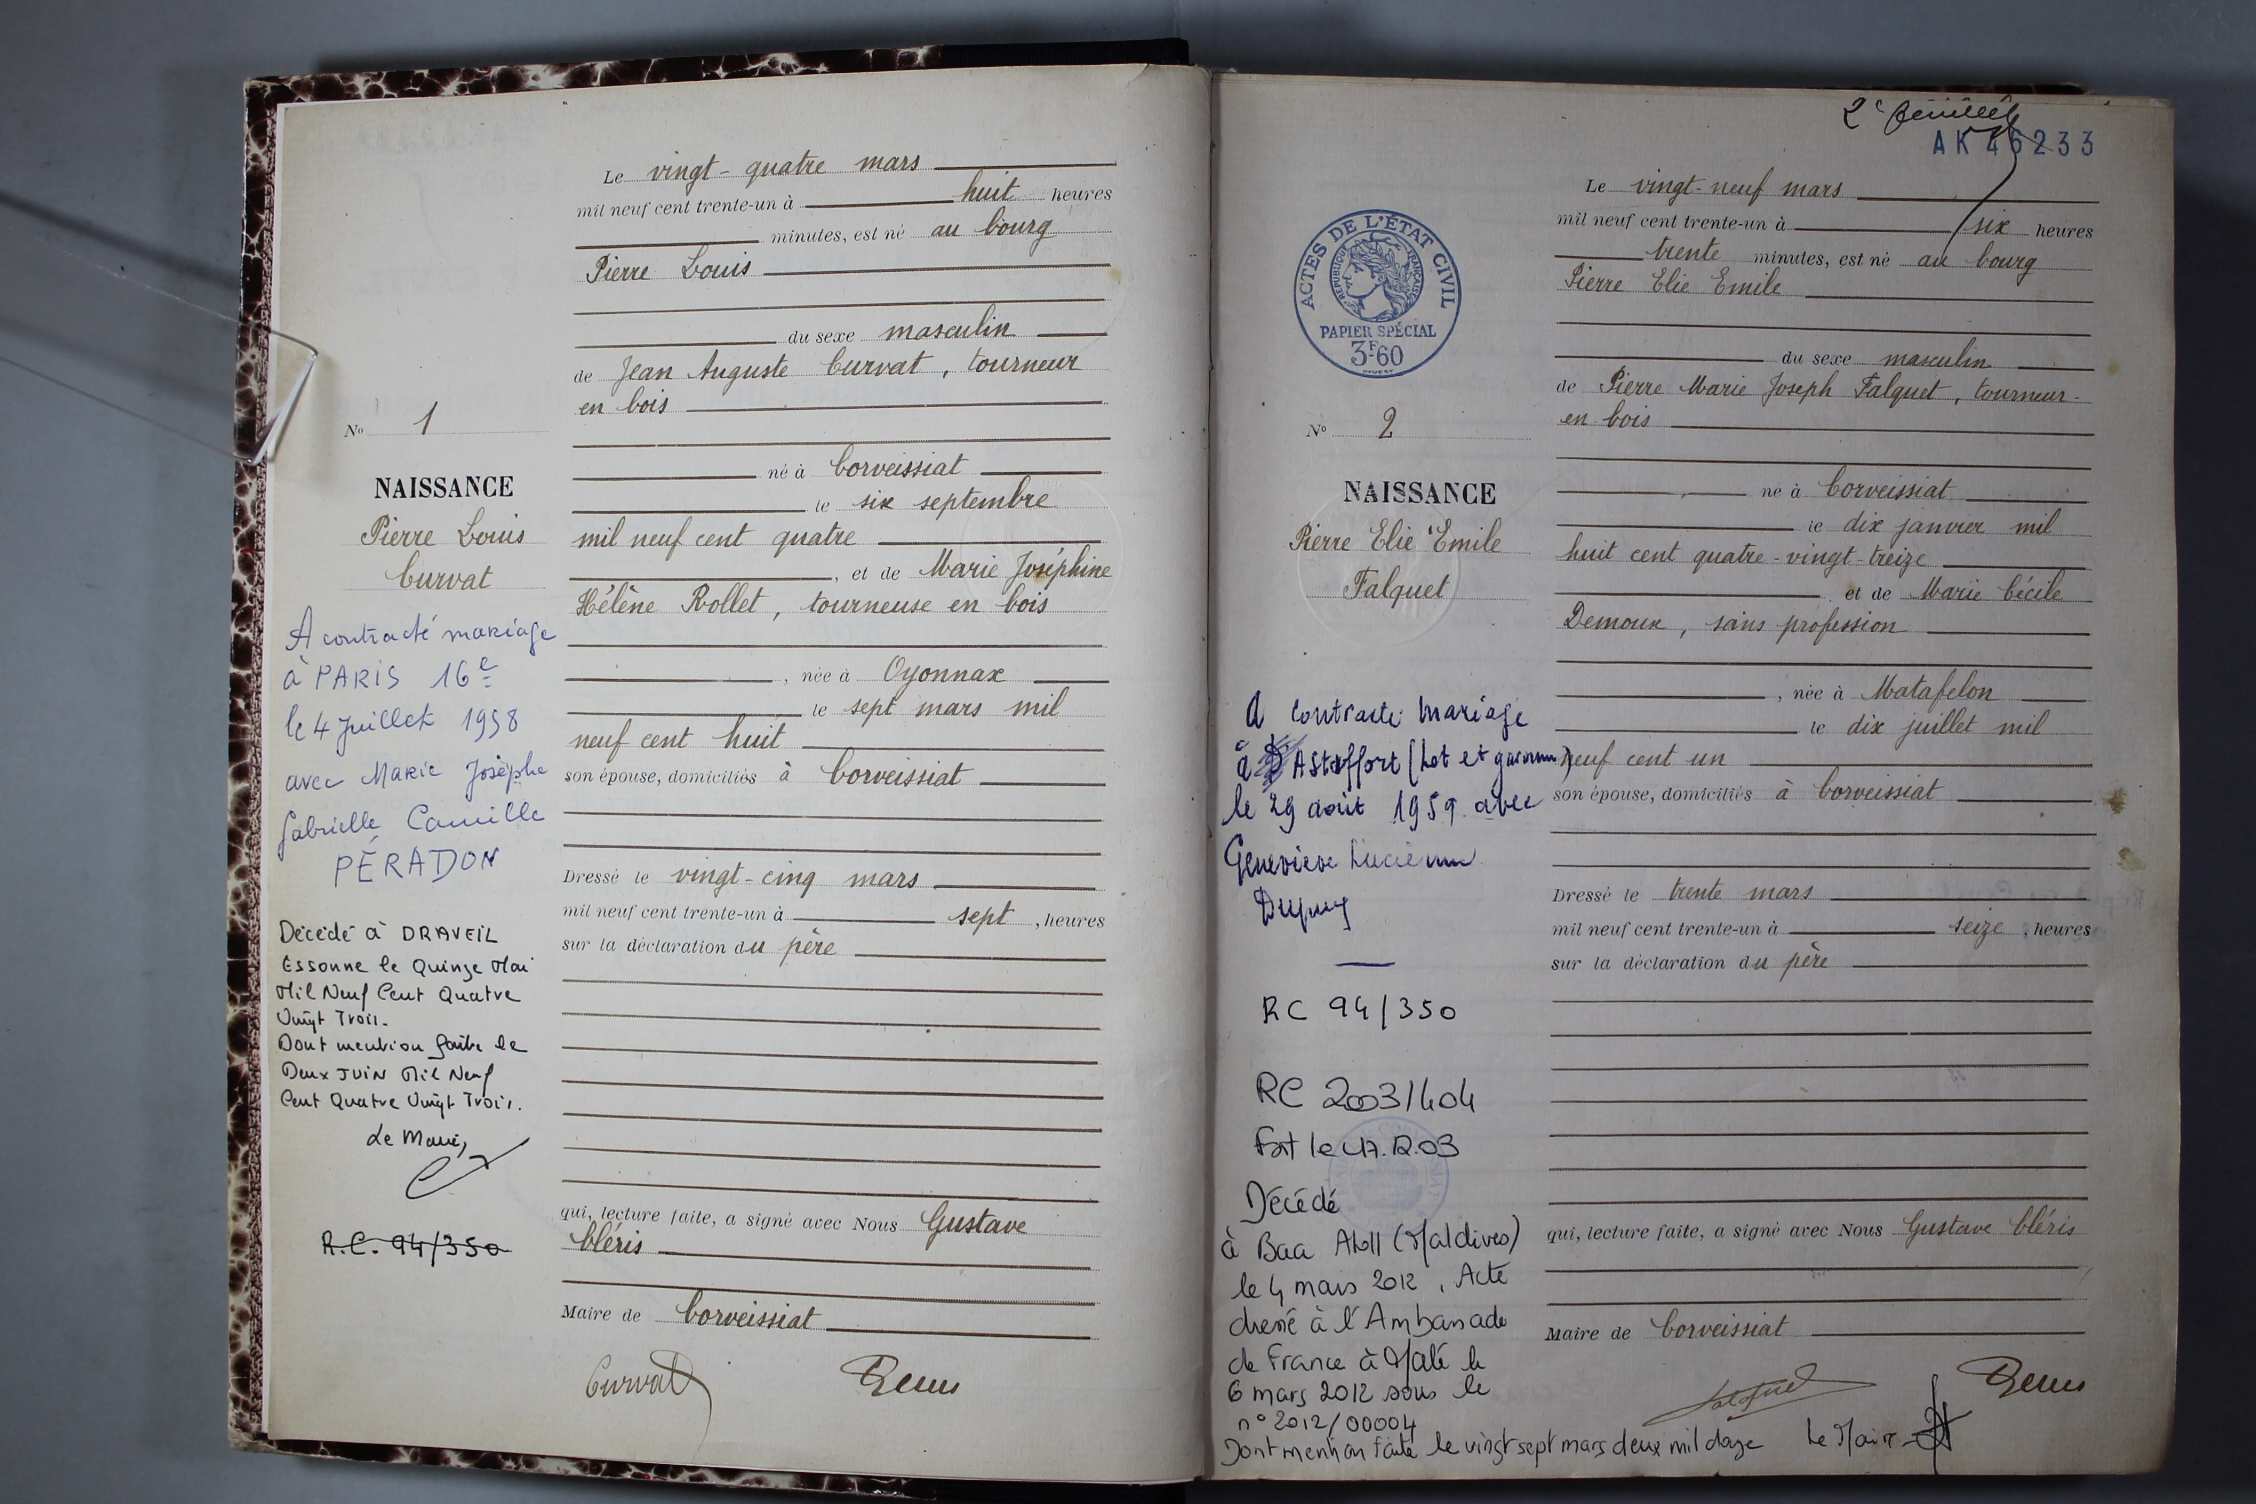 Le vingt-quatre mars
mil neuf cent trente-un à huit heures
minutes, est né au bourg
Pierre Louis
du sexe masculin
de Jean Auguste Curvat, tourneur
en bois
né à Corveissiat
le six septembre
mil neuf cent quatre
, et de Marie Joséphine
Hélène Rollet, tourneuse en bois
, née à Oyonnax
le sept mars mil
neuf cent huit
son épouse, domiciliés à Corveissiat
Dressé le vingt-cinq mars
mil neuf cent trente-un à sept, heures
sur la déclaration du père
qui, lecture faite, a signé avec Nous Gustave
Cléris
Maire de Corveissiat
Curvat
No 1
NAISSANCE
Pierre Louis
Curvat
A contracté mariage
à PARIS 16e
le 4 Juillet 1958
avec Marie Josèphe
Gabrielle Camille
PÉRADON
Décédé à DRAVEIL
Essonne le Quinze Mai
Mil Neuf Cent Quatre
Vingt Trois.
Dont mention faite le
Deux JUIN Mil Neuf
Cent Quatre Vingt Trois.
Le Maire,
R.C. 94/350
2e feuillet
AK 46233
ACTES DE L'ÉTAT CIVIL
REPUBLIQUE FRANÇAISE
PAPIER SPÉCIAL
3F60
No 2
NAISSANCE
Pierre Elie Emile
Falquet
A contracté mariage
à Astaffort (Lot et garonne)
le 29 août 1959 avec
Geneviève Lucienne
Dupuy
RC 94/350
RC 2003/404
Fait le 17.12.03
Décédé
à Baa Atoll (Maldives)
le 4 mars 2012, Acte
dressé à l'Ambassade
de France à Malé le
6 mars 2012 sous le
n° 2012/00004
Dont mention faite le vingt sept mars deux mil douze Le Maire
Le vingt-neuf mars
mil neuf cent trente-un à six heures
trente minutes, est né au bourg
Pierre Elie Emile
du sexe masculin
de Pierre Marie Joseph Falquet, tourneur-
en bois
né à Corveissiat
le dix janvier mil
huit cent quatre-vingt-treize
et de Marie Cécile
Demoux, sans profession
, née à Matafelon
le dix juillet mil
neuf cent un
son épouse, domiciliés à Corveissiat
Dressé le trente mars
mil neuf cent trente-un à seize, heures
sur la déclaration du père
qui, lecture faite, a signé avec Nous Gustave Cléris
Maire de Corveissiat
Falquet